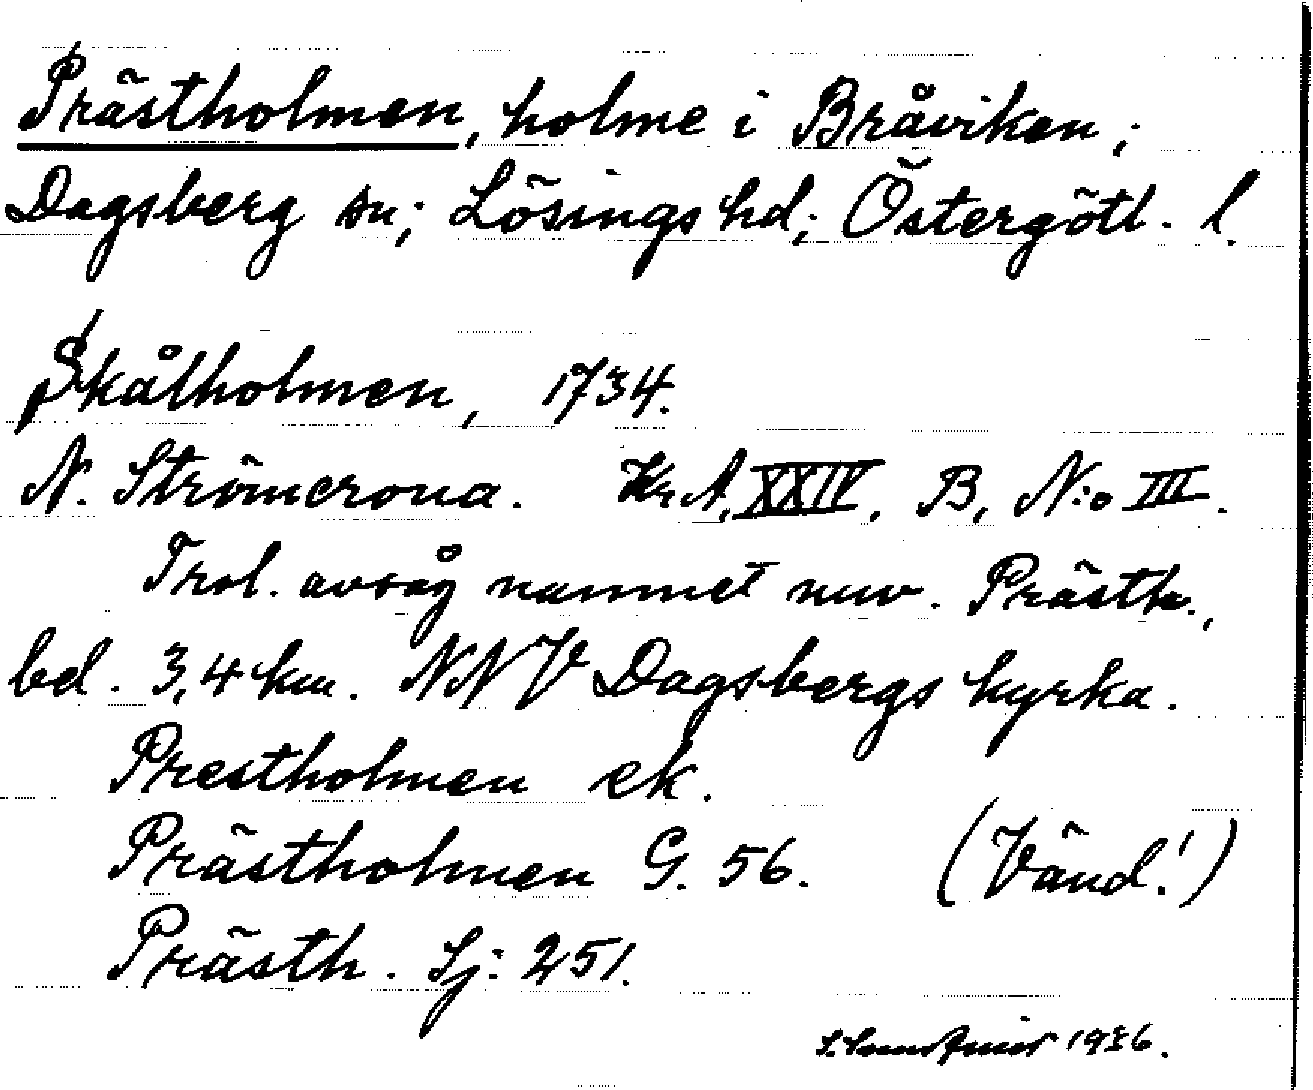 Prästholmen, holme i Bråviken;
Dagsberg sn; Lösings hd; Östergötl. l.
Skålholmen, 1734.
N. Strömcrona. Kr.A, XXIV, B, N:o III.
Trol. avsåg namnet nuv. Prästh.,
bel. 3,4 km. NNV Dagsbergs kyrka.
Prestholmen ek.
Prästholmen G. 56. (Vänd!)
Prästh. Sj: 251.
1936.